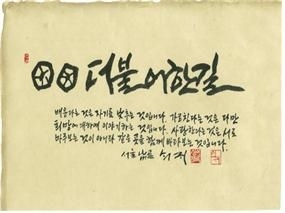 더불어한길
배운다는 것은 자기를 낮추는 것입니다. 가르친다는 것은 다만
희망에 대하여 이야기하는 것입니다. 사랑한다는 것은 서로
마주보는 것이 아니라 같은 곳을 함께 바라보는 것입니다.